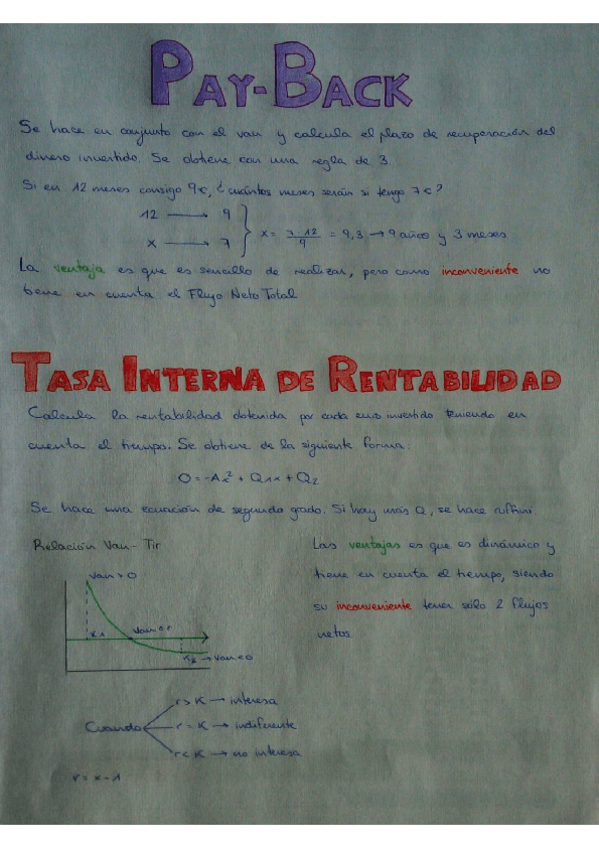 PAY-BACK
Se hace en conjunto con el van y calcula el plazo de recuperación del
dinero invertido. Se obtiene con una regla de 3.
Si en 12 meses consigo 9€, ¿cuántos meses serán si tengo 7€?
12 → 9
x → 7
x = 7·12/9 = 9,3 → 9 años y 3 meses
La ventaja es que es sencillo de realizar, pero como inconveniente no
tiene en cuenta el Flujo Neto Total
TASA INTERNA DE RENTABILIDAD
Calcula la rentabilidad obtenida por cada euro invertido teniendo en
cuenta el tiempo. Se obtiene de la siguiente forma:
0 = -Ax² + Q1x + Q2
Se hace una ecuación de segundo grado. Si hay más Q, se hace ruffini.
Relación Van - Tir
Van > 0
K1
Van = 0 r
K2 → Van < 0
Las ventajas es que es dinámico y
tiene en cuenta el tiempo, siendo
su inconveniente tener sólo 2 flujos
netos
Cuando
r > K → interesa
r = K → indiferente
r < K → no interesa
r = x - 1